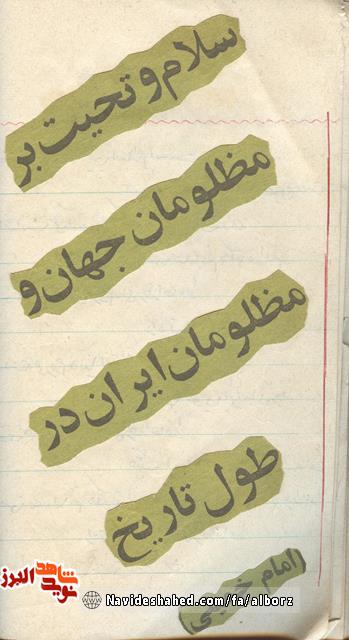 سلام و تحیت بر
مظلومان جهان و
مظلومان ایران در
طول تاریخ
امام خمینی
نوید شاهد البرز
Navideshahed.com/fa/alborz